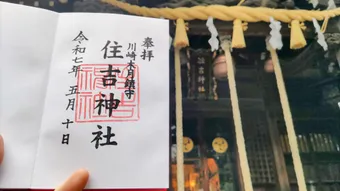 奉拝
川崎木月鎮守
住吉神社
令和七年 五月十日
住吉神社